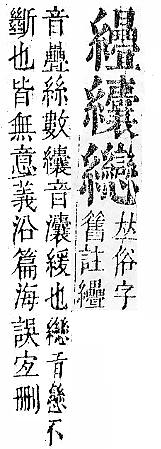 纕纞
𠀤俗字
舊註
音疊絲數纕音瀼緩也纞音戀不
斷也皆無意義沿篇海誤宐刪